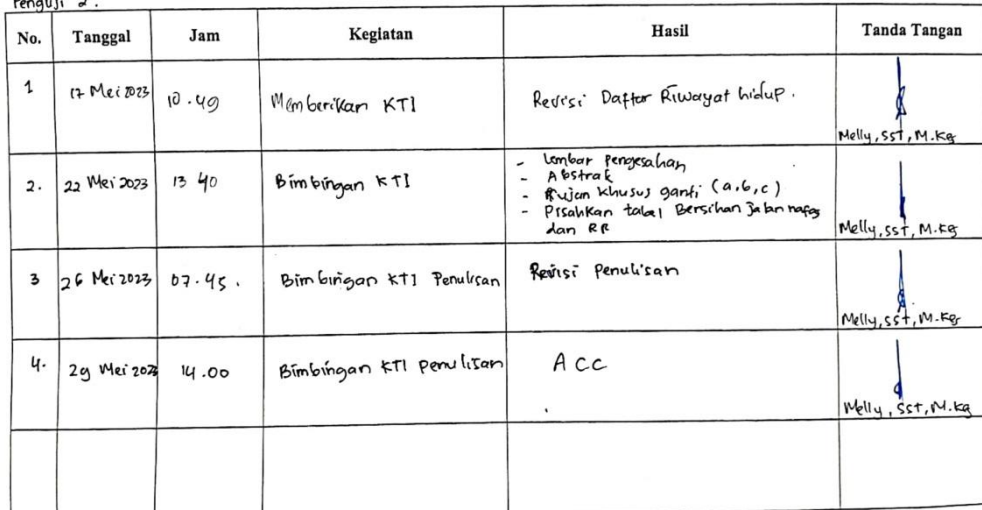 Penguji 2.
No. Tanggal Jam Kegiatan Hasil Tanda Tangan
1 17 Mei 2023 10.49 Memberikan KTI Revisi Daftar Riwayat hidup.
Melly, SST, M.Kg
2. 22 Mei 2023 13 40 Bimbingan KTI - Lembar Pengesahan
- Abstrak
- Khusus ganti (a,b,c)
- Pisahkan tabel Bersihan Jalan nafas
dan RR
Melly, SST, M.Kg
3 26 Mei 2023 07.45. Bimbingan KTI Penulisan Revisi Penulisan
Melly, SST, M.Kg
4. 29 Mei 2023 14.00 Bimbingan KTI Penulisan ACC
Melly, SST, M.Kg